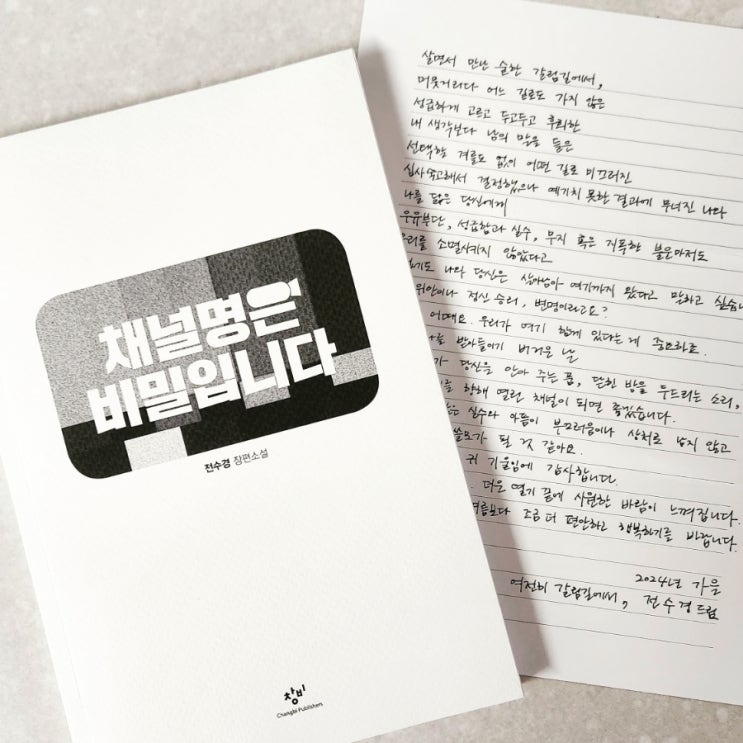 채널명은
비밀입니다
전수경 장편소설
창비
Changbi Publishers
살면서 만난 숱한 갈림길에서,
머뭇거리다 어느 길로도 가지 않은
성급하게 고르고 두고두고 후회한
내 생각보다 남의 말을 들은
선택할 겨를도 없이 어떤 길로 미끄러진
심사숙고해서 결정했으나 예기치 못한 결과에 무너진 나와
나를 닮은 당신에게
우유부단, 성급함과 실수, 무지 혹은 지독한 불운마저도
우리를 소멸시키지 않았다고
나와 당신은 살아남아 여기까지 왔다고 말하고 싶습니
위안이나 정신 승리, 변명이라고요?
어때요. 우리가 여기 함께 있다는 게 중요하죠.
받아들이기 버거운 날
당신을 안아 주는 품, 닫힌 방을 두드리는 소리,
향해 열린 채널이 되면 좋겠습니다.
실수와 아픔이 부끄러움이나 상처로 남지 않고
쓸모가 될 것 같아요.
귀 기울임에 감사합니다.
더운 열기 끝에 시원한 바람이 느껴집니다.
여름보다 조금 더 편안하고 행복하기를 바랍니다.
2024년 가을
여전히 갈림길에서, 전수경 드림